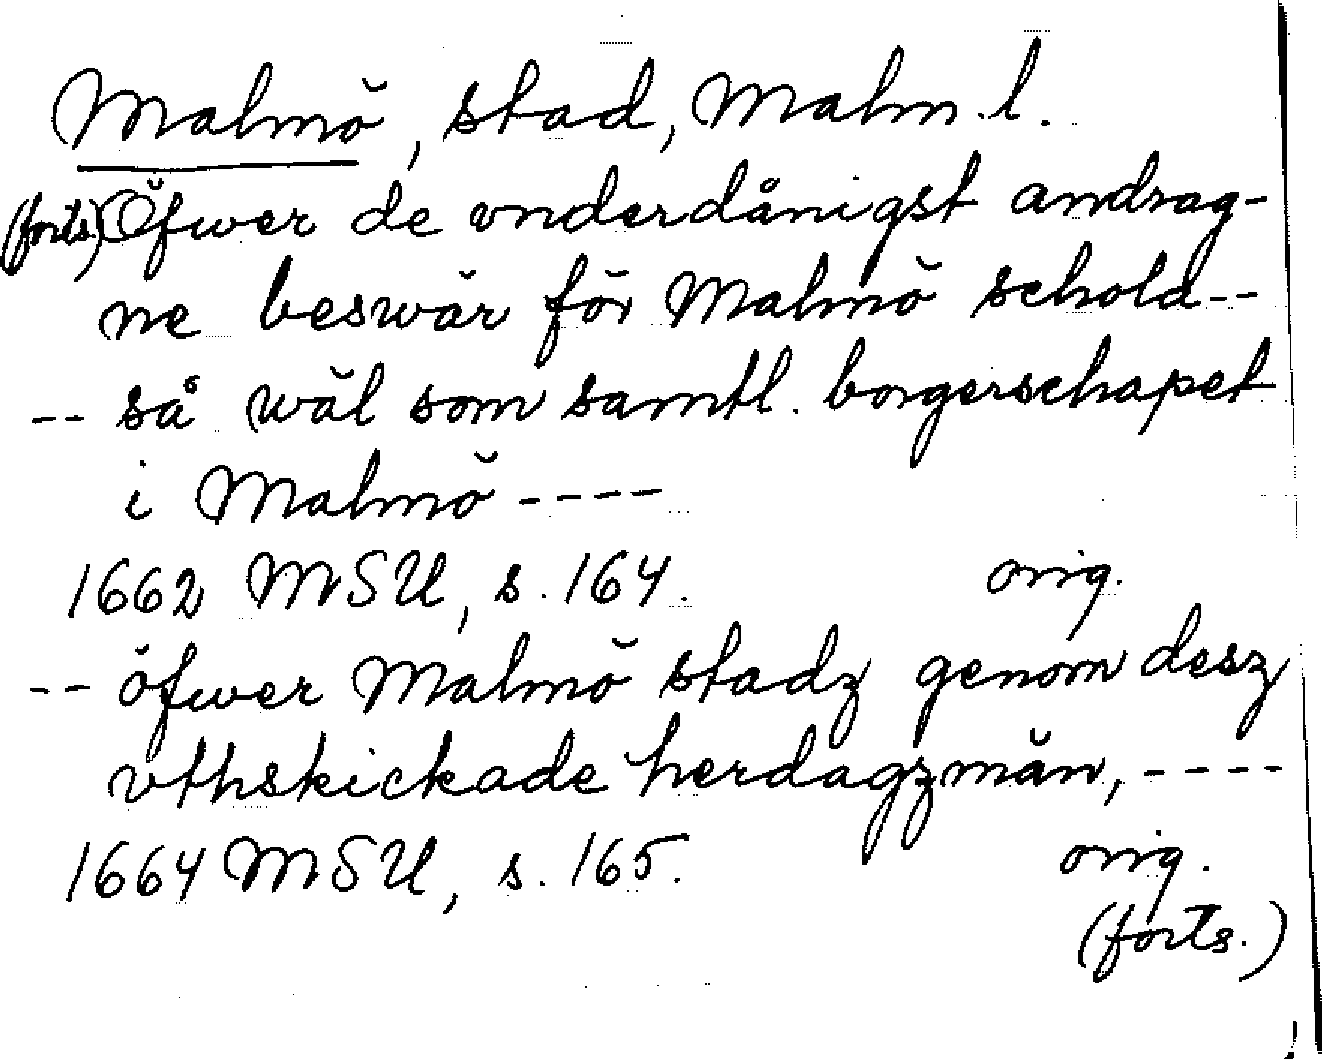 Malmö, stad, Malm. l.
(forts.) Öfwer de vnderdånigst andrag-
ne beswär för Malmö schola --
-- så wäl som samtl. borgerschapet
i Malmö ----
1662 MSU, s. 164. orig.
-- öfwer Malmö stadz genom desz
vthskickade herdagzmän, ----
1664 MSU, s. 165. orig.
(forts.)